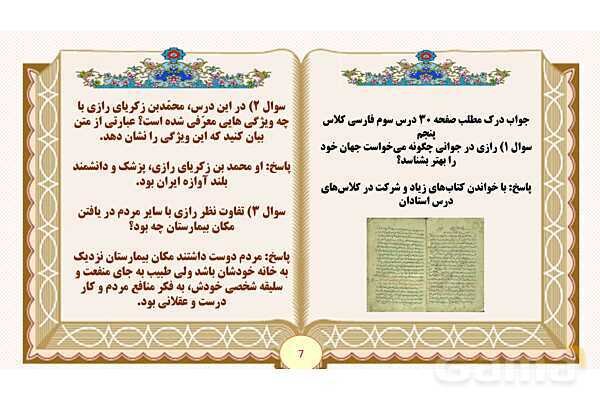 جواب درک مطلب صفحه ۳۰ درس سوم فارسی کلاس
پنجم
سوال ۱) رازی در جوانی چگونه می‌خواست جهان خود
را بهتر بشناسد؟
پاسخ: با خواندن کتاب‌های زیاد و شرکت در کلاس‌های
درس استادان
سوال ۲) در این درس، محمّدبن زکریای رازی با
چه ویژگی هایی معرّفی شده است؟ عبارتی از متن
بیان کنید که این ویژگی را نشان دهد.
پاسخ: او محمد بن زکریای رازی، پزشک و دانشمند
بلند آوازه ایران بود.
سوال ۳) تفاوت نظر رازی با سایر مردم در یافتن
مکان بیمارستان چه بود؟
پاسخ: مردم دوست داشتند مکان بیمارستان نزدیک
به خانه خودشان باشد ولی طبیب به جای منفعت و
سلیقه شخصی خودش، به فکر منافع مردم و کار
درست و عقلانی بود.
7
Gama